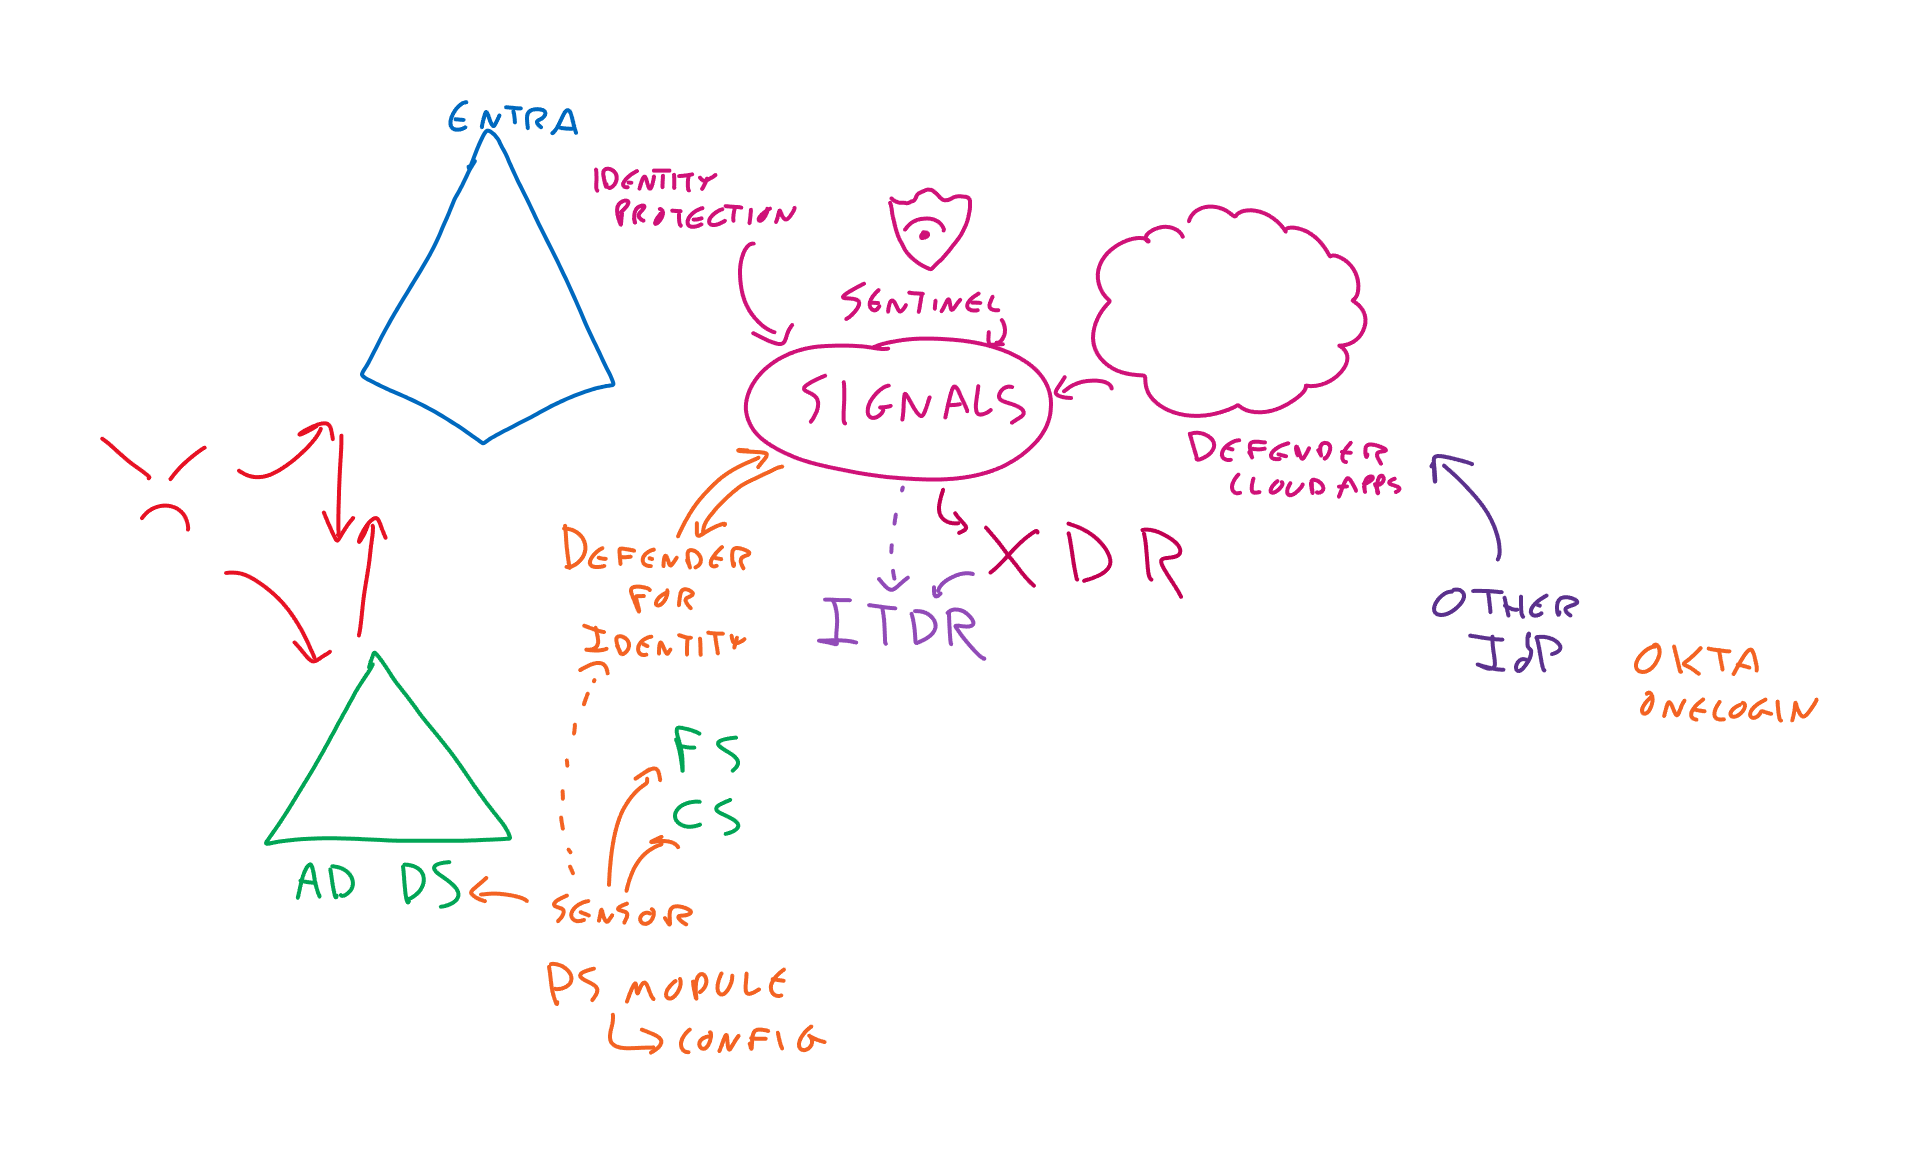 ENTRA
IDENTITY
PROTECTION
SENTINEL
SIGNALS
DEFENDER
CLOUD APPS
DEFENDER
FOR
IDENTITY
XDR
ITDR
OTHER
IdP
OKTA
ONELOGIN
FS
CS
AD DS
SENSOR
PS MODULE
CONFIG